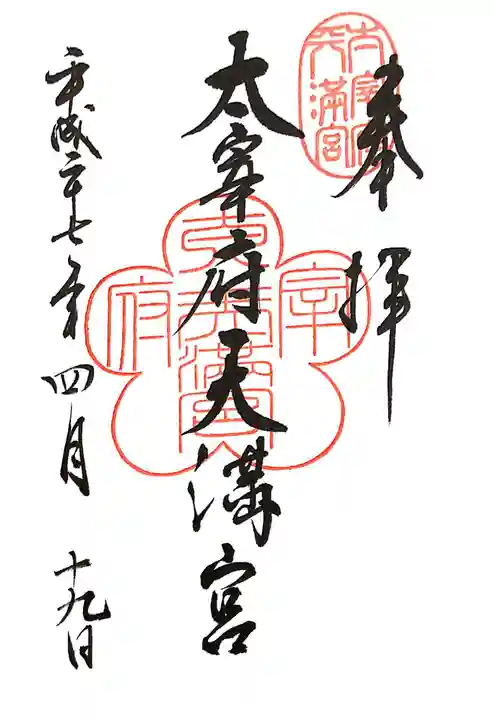 奉拝
太宰府天満宮
太宰府
天満宮
太宰府天満宮
平成二十七年四月十九日